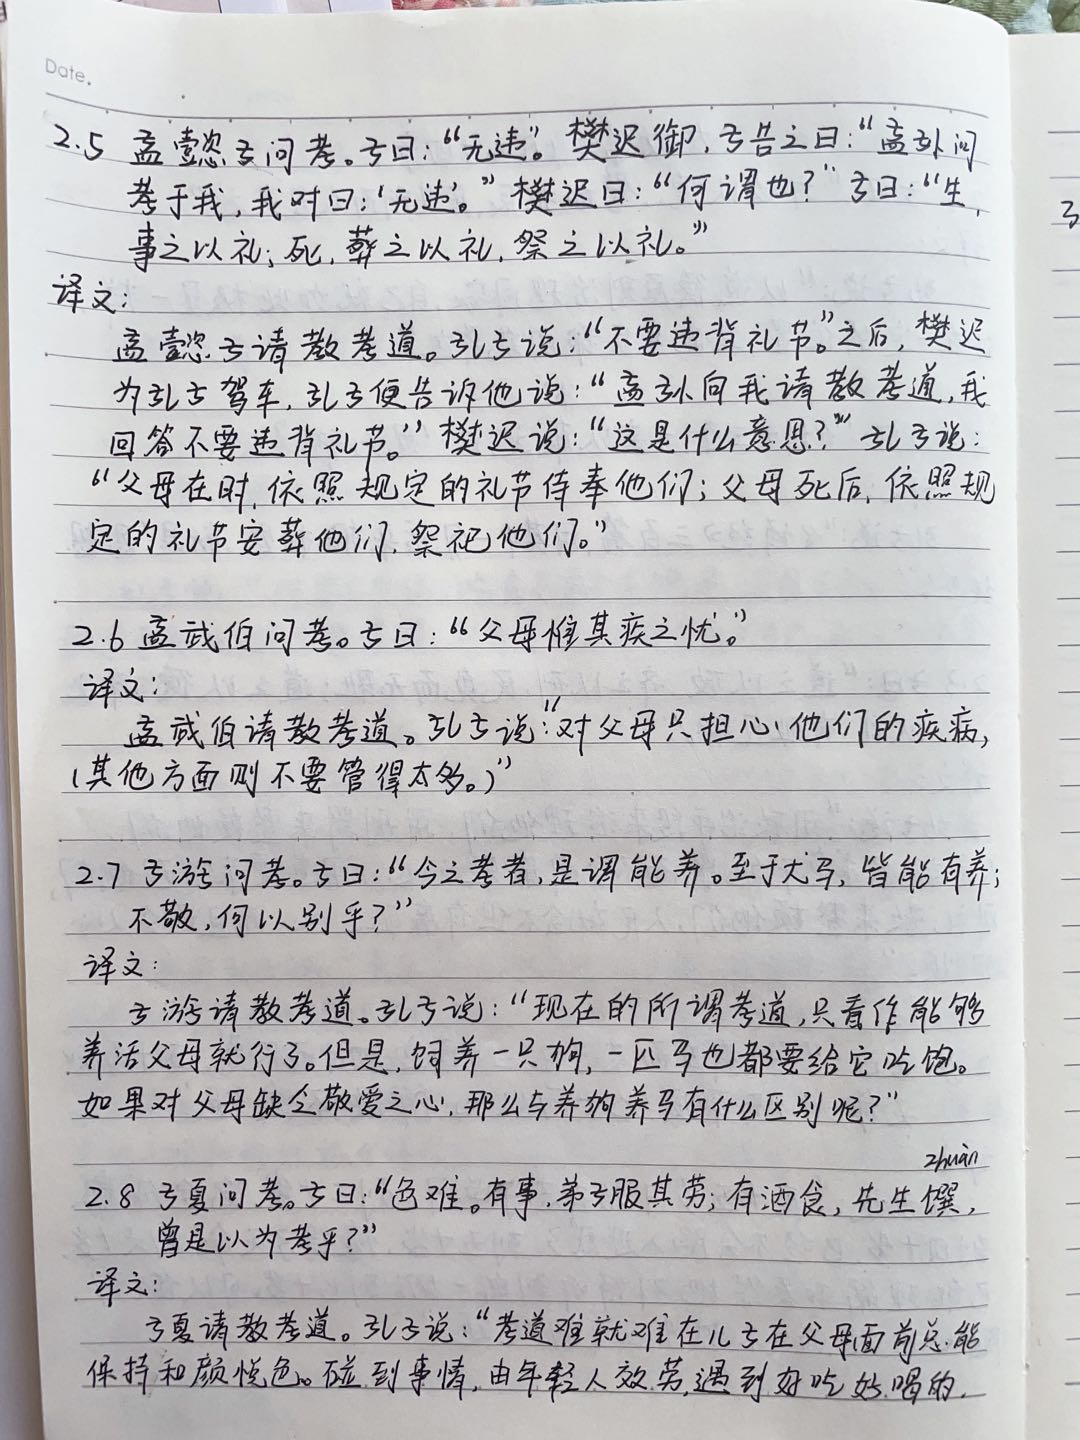 Date.
2.5 孟懿子问孝。子曰：“无违”。樊迟御，子告之曰：“孟孙问
孝于我，我对曰：‘无违’。”樊迟曰：“何谓也？”子曰：“生，
事之以礼；死，葬之以礼，祭之以礼。”
译文：
孟懿子请教孝道。孔子说：“不要违背礼节。”之后，樊迟
为孔子驾车，孔子便告诉他说：“孟孙向我请教孝道，我
回答不要违背礼节。”樊迟说：“这是什么意思？”孔子说：
“父母在时，依照规定的礼节侍奉他们；父母死后，依照规
定的礼节安葬他们，祭祀他们。”
2.6 孟武伯问孝。子曰：“父母惟其疾之忧。”
译文：
孟武伯请教孝道。孔子说：“对父母只担心他们的疾病，
（其他方面则不要管得太多。）”
2.7 子游问孝。子曰：“今之孝者，是谓能养。至于犬马，皆能有养；
不敬，何以别乎？”
译文：
子游请教孝道。孔子说：“现在的所谓孝道，只看作能够
养活父母就行了。但是，饲养一只狗，一匹马也都要给它吃饱。
如果对父母缺仑敬爱之心，那么与养狗养马有什么区别呢？”
zhuàn
2.8 子夏问孝。子曰：“色难。有事，弟子服其劳；有酒食，先生馔，
曾是以为孝乎？”
译文：
子夏请教孝道。孔子说：“孝道难就难在儿子在父母面前总能
保持和颜悦色。碰到事情，由年轻人效劳，遇到好吃好喝的，